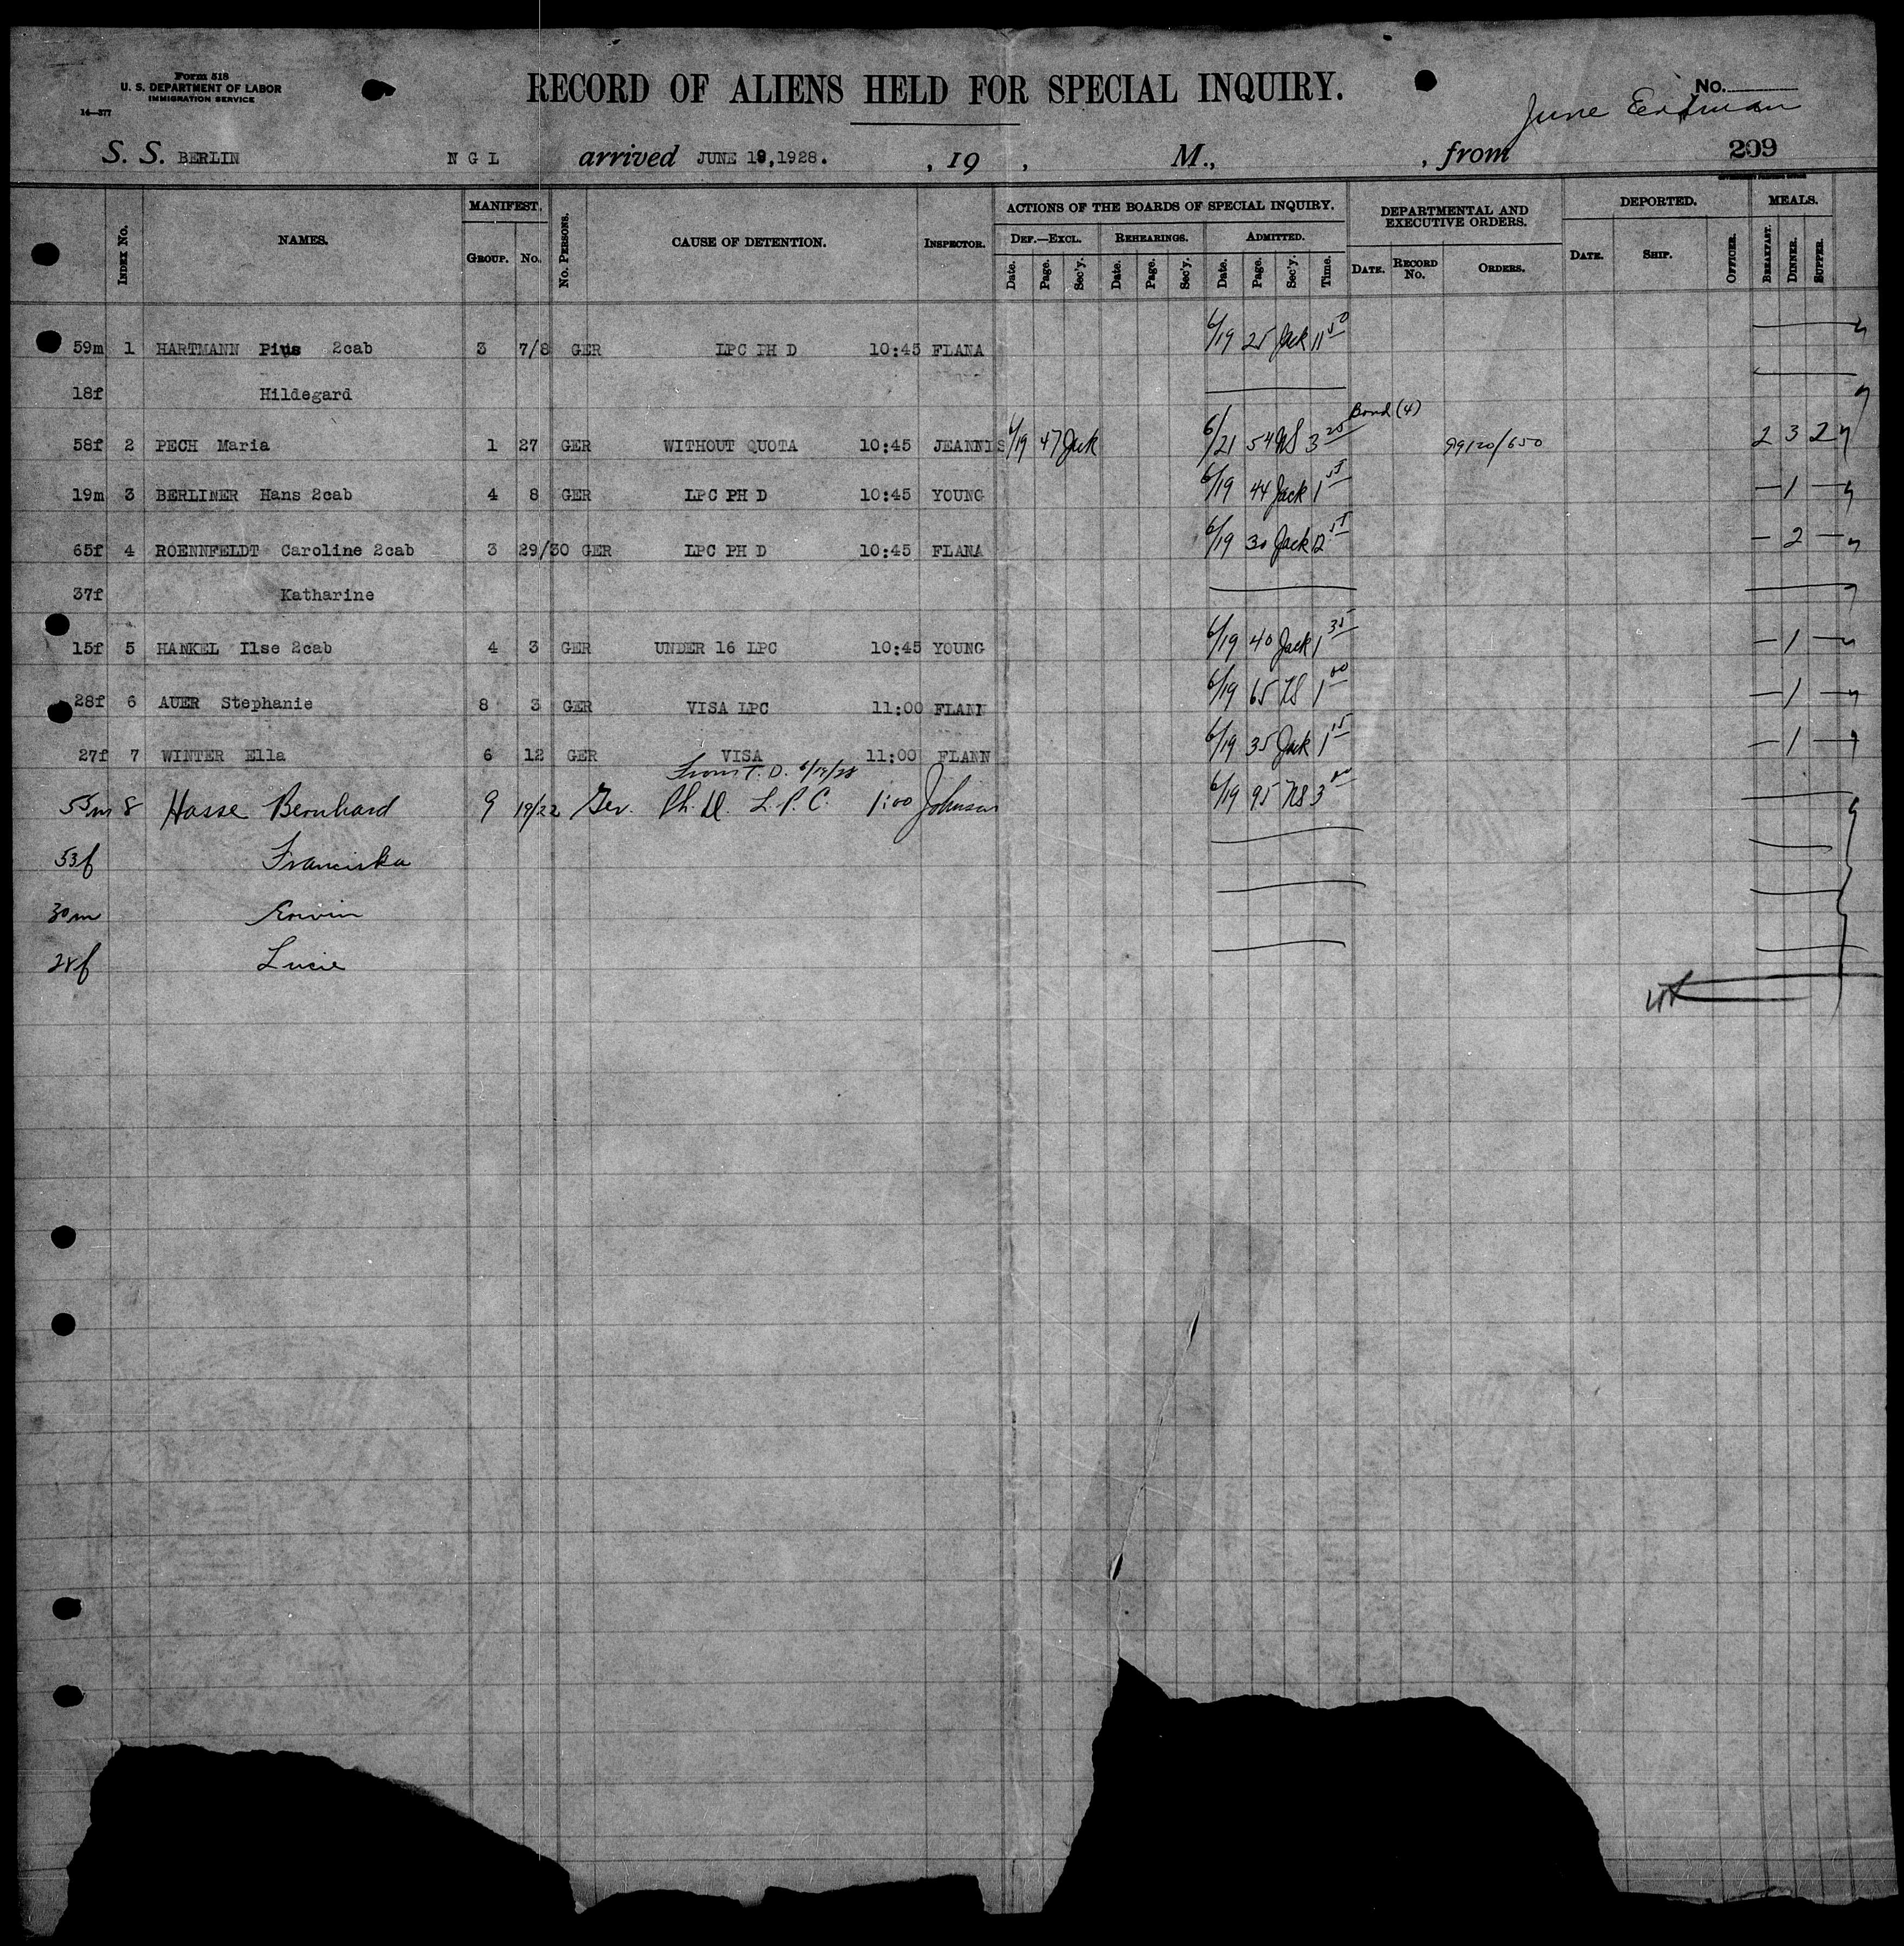 Form 518
U. S. DEPARTMENT OF LABOR
IMMIGRATION SERVICE
14—377
RECORD OF ALIENS HELD FOR SPECIAL INQUIRY.
No.
June
S. S. BERLIN N G L arrived JUNE 19,1928. , 19 , M., , from 209
INDEX No. NAMES. MANIFEST. GROUP. No. No. PERSONS. CAUSE OF DETENTION. INSPECTOR. ACTIONS OF THE BOARDS OF SPECIAL INQUIRY. DEF.—EXCL. Date. Page. Sec'y. REHEARINGS. Date. Page. Sec'y. ADMITTED. Date. Page. Sec'y. Time. DEPARTMENTAL AND EXECUTIVE ORDERS. DATE. RECORD No. ORDERS. DEPORTED. DATE. SHIP. OFFICER. MEALS. BREAKFAST. DINNER. SUPPER.
59m 1 HARTMANN Pius 2cab 3 7/8 GER LPC PH D 10:45 FLANA 6/19 25 Jack 11 50
18f Hildegard
Bond (4)
58f 2 PECH Maria 1 27 GER WITHOUT QUOTA 10:45 JEANNIS 6/19 47 Jack 6/21 54 NS 3 20 99120/650 2 3 2
19m 3 BERLINER Hans 2cab 4 8 GER LPC PH D 10:45 YOUNG 6/19 44 Jack 1 55 — 1 —
65f 4 ROENNFELDT Caroline 2cab 3 29/30 GER LPC PH D 10:45 FLANA 6/19 30 Jack 12 55 — 2 —
37f Katharine
15f 5 HANKEL Ilse 2cab 4 3 GER UNDER 16 LPC 10:45 YOUNG 6/19 40 Jack 1 35 — 1 —
28f 6 AUER Stephanie 8 3 GER VISA LPC 11:00 FLANN 6/19 65 NS 1 00 — 1 —
27f 7 WINTER Ella 6 12 GER VISA 11:00 FLANN 6/19 35 Jack 1 15 — 1 —
From T. D. 6/19/28
55m 8 Hasse Bernhard 9 19/22 Ger. Ph. D. L. P. C. 1:00 Johnson 6/19 95 NS 3 00
53f Franciska
30m Erwin
28f Lucie